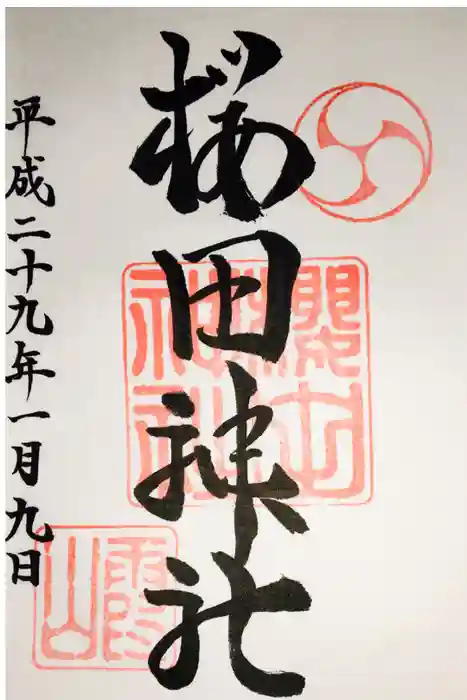 桜田神社
櫻田神社
平成二十九年一月九日
霞山